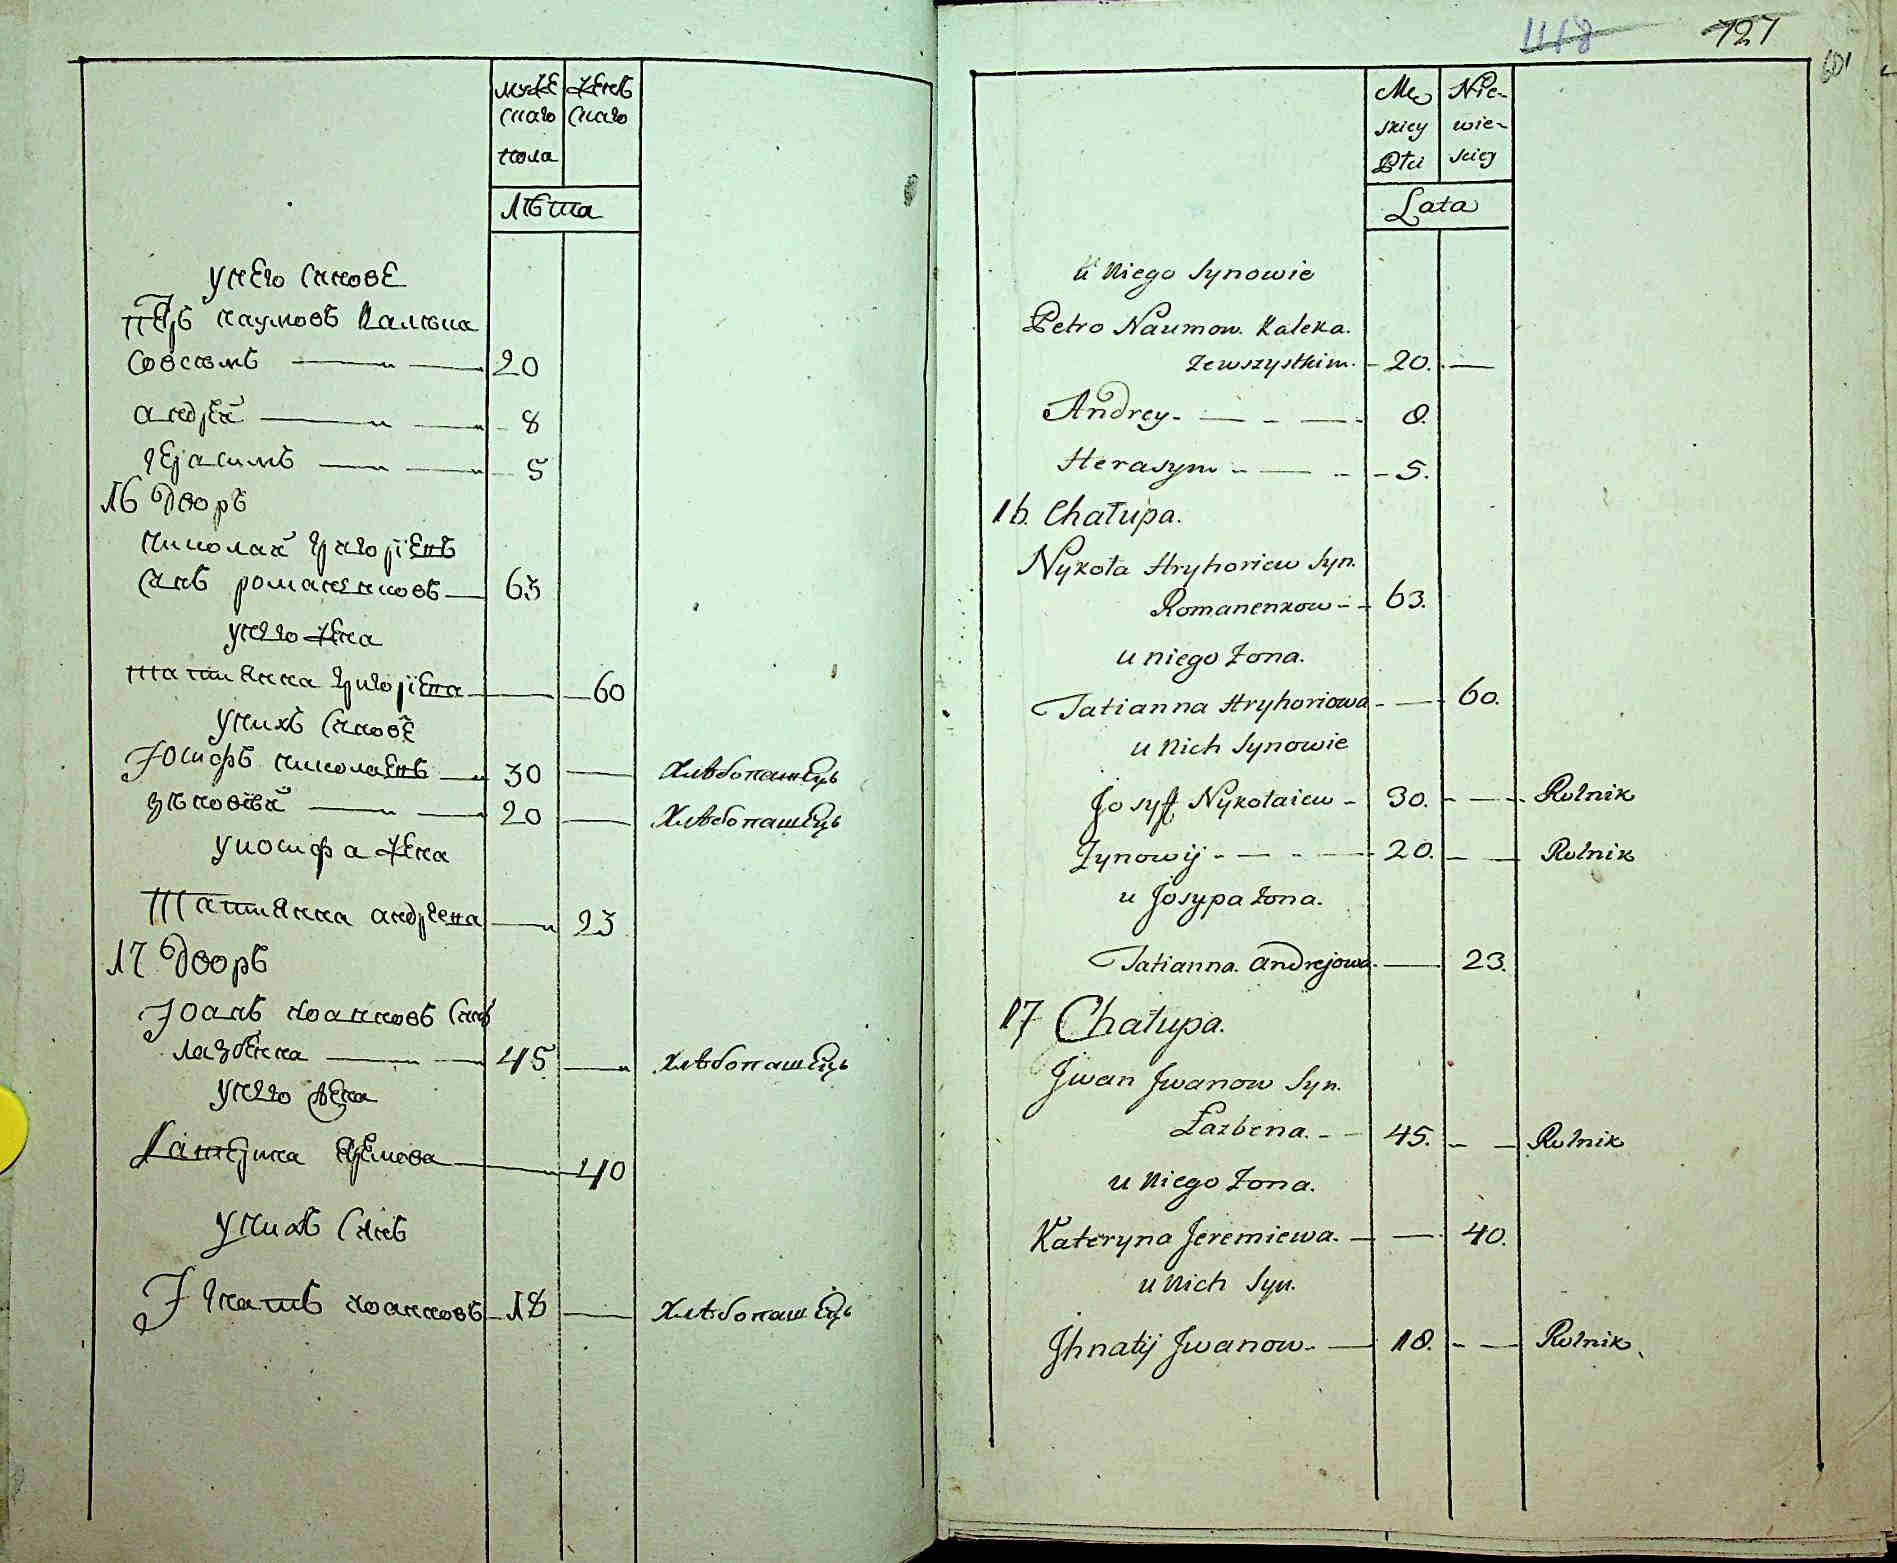 муже
скаго
пола
женс
скаго
Лѣта
у него синове
Петръ наумовъ Калѣка
совсѣмъ 20
андрей 8
герасимъ 5
16 дворъ
николай григоріевъ
синъ романенковъ 63
у него жена
татиянна григоріева 60
у нихъ синове
Іосифъ николаевъ 30 Хлѣбопашецъ
зѣновѣй 20 Хлѣбопашецъ
у иосифа жена
Татиянна андреева 23
17 дворъ
Іоанъ иоанновъ синъ
лазбенна 45 Хлѣбопашецъ
у него жена
Катерина еремева 40
у нихъ синъ
Игнатъ иоанновъ 18 Хлѣбопашецъ
1118 727
601
Mę
skiey
Płci
Nie-
wie-
sciey
Lata
u Niego Synowie
Petro Naumow. Kaleka.
zewszystkim. 20.
Andrey 8.
Herasym 5.
16. Chałupa.
Nykoła Hryhoriew Syn.
Romanenkow 63.
u niego Żona.
Tatianna Hryhoriowa 60.
u Nich Synowie
Josyff Nykołaiew 30. Rolnik
Zynowij 20. Rolnik
u Josypa Żona.
Tatianna. Andrejowa 23.
17 Chałupa.
Jwan Jwanow Syn.
Łazbena. 45. Rolnik
u Niego Żona.
Kateryna Jeremiewa. 40.
u Nich Syn.
Jhnatij Jwanow. 18. Rolnik.